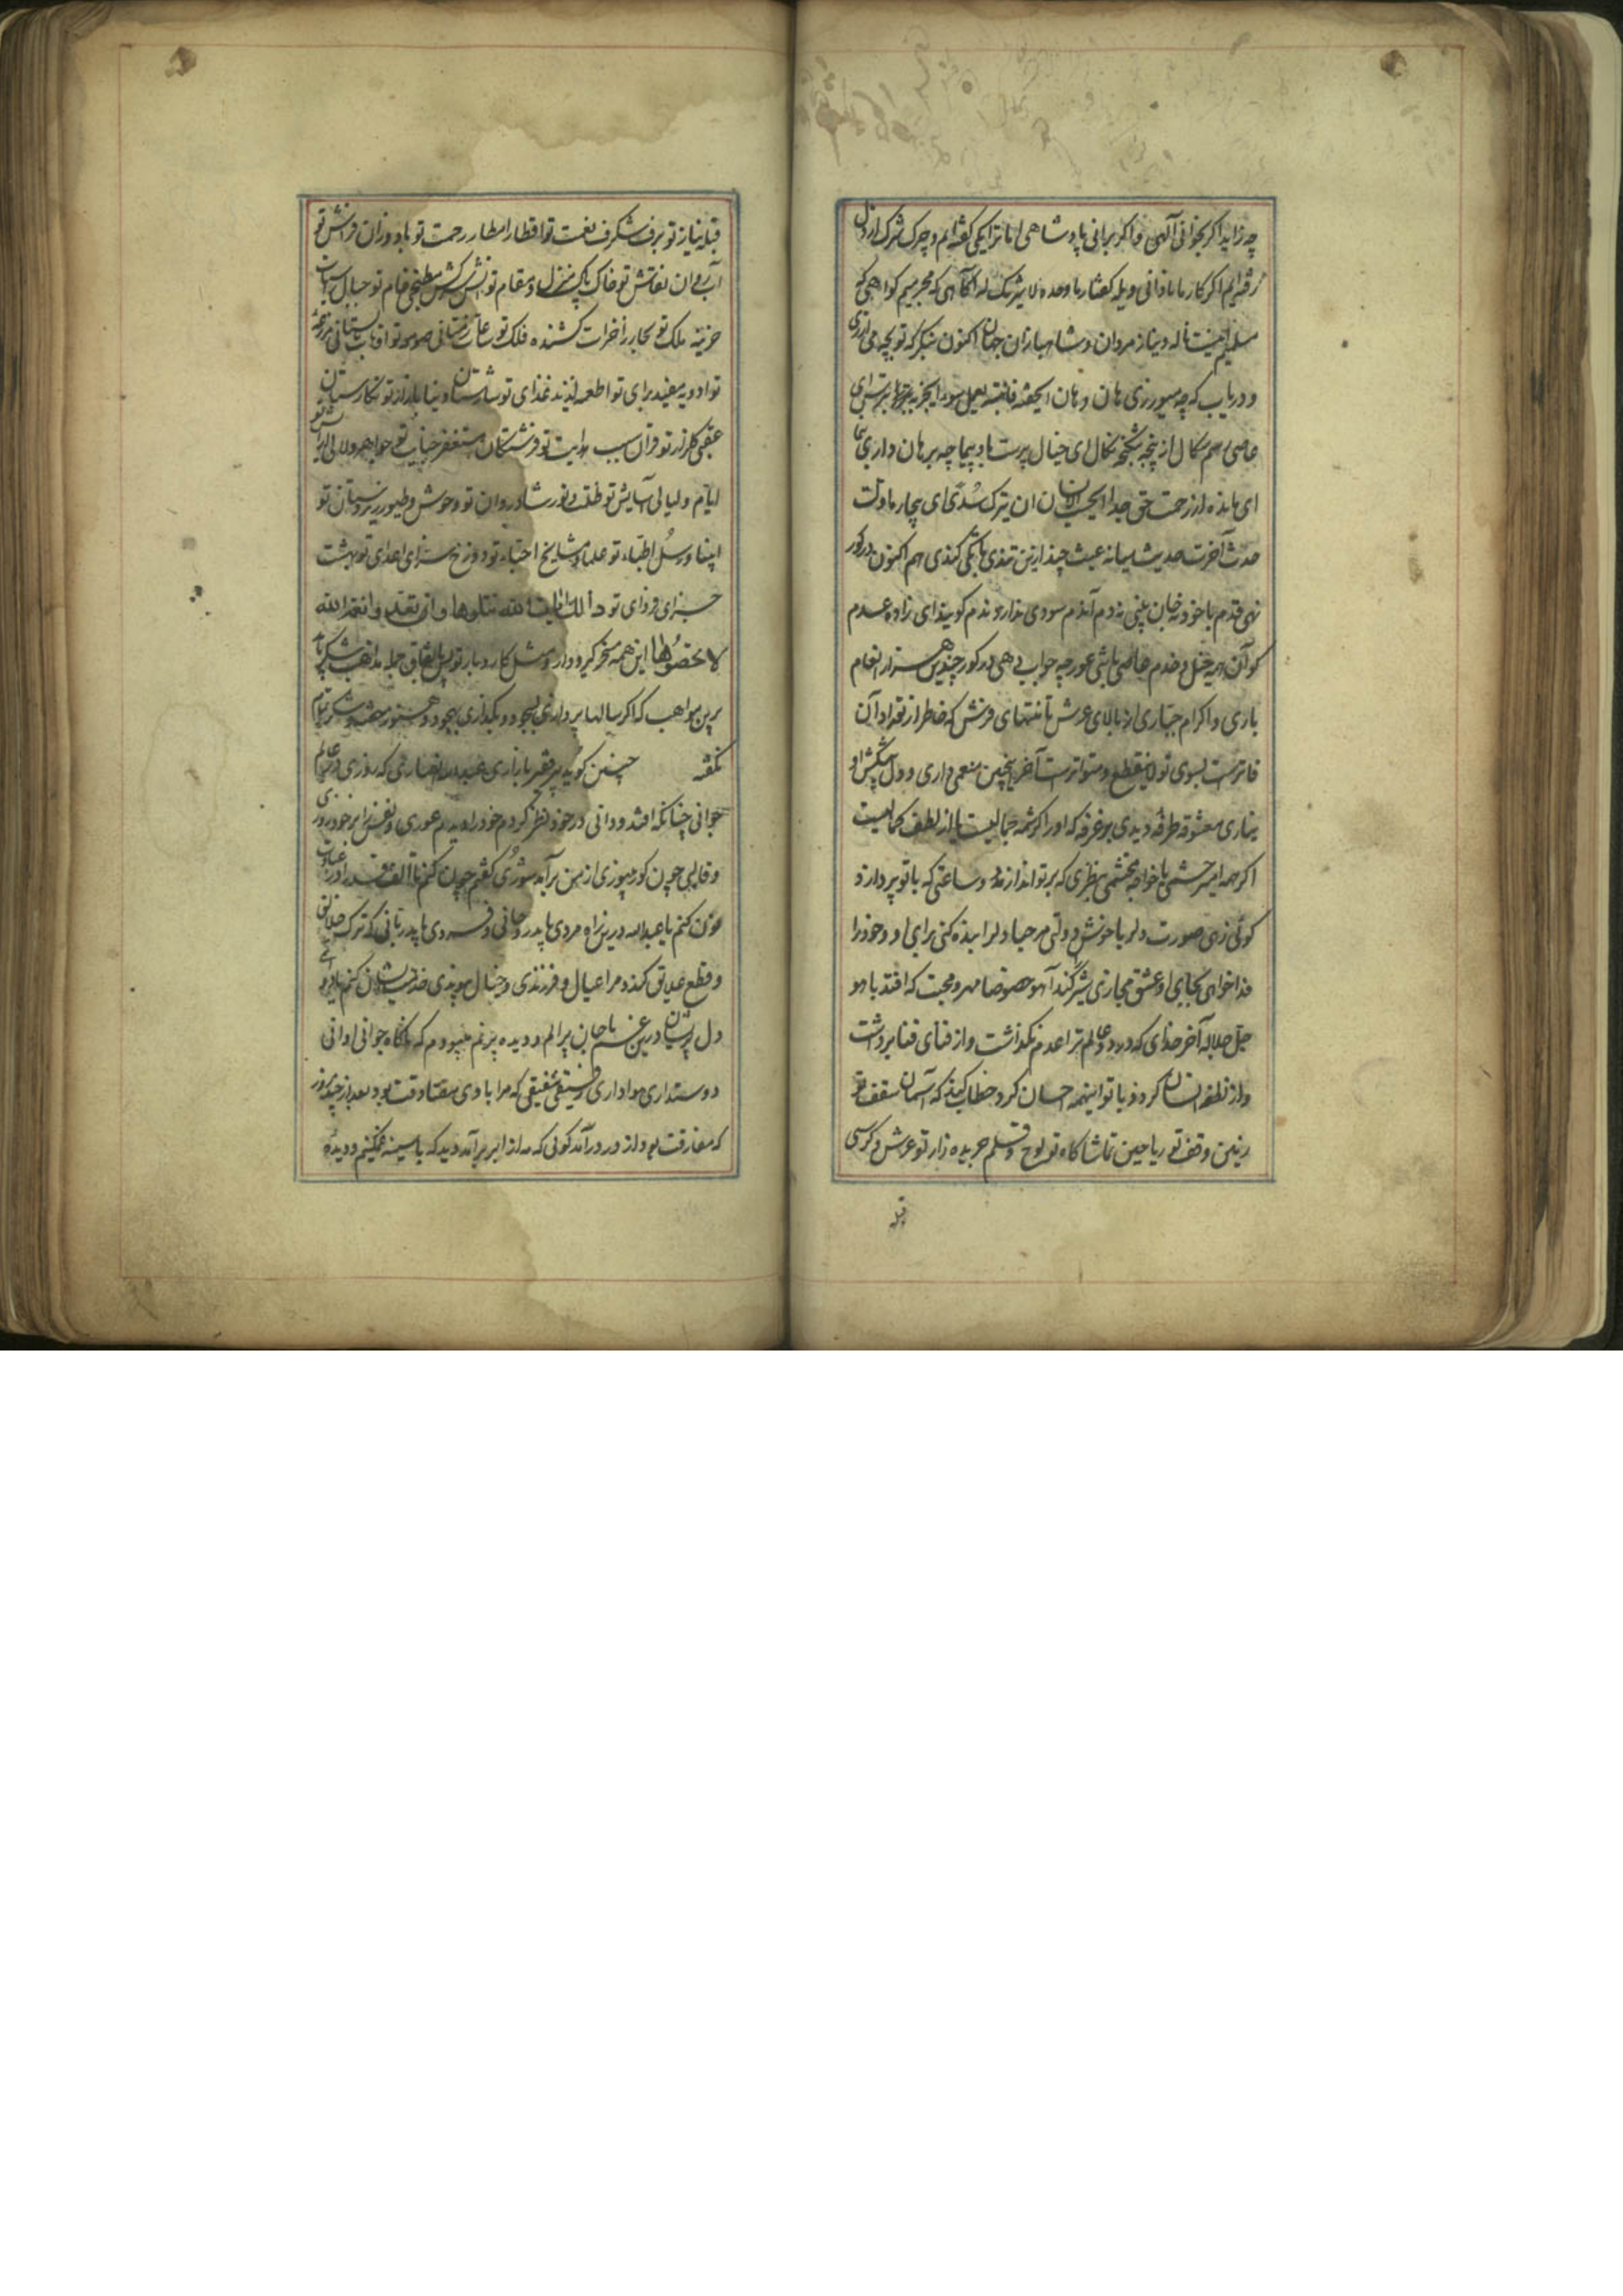 چه زاید اگر بخوانی الهی و اگر برانی پادشاهی اما ترا یکی گفته ایم و چرک شرک از دل
رفته ایم اگر کار ما نادانی ویله گفتار ما وحده لا شریک له آگاهی که مجرمیم گواهی که
مسلمانیم اینست ناله و نیاز مردان و شاهبازان جهان اکنون بنگر که تو بچه می ارزی
و دریاب که چه میورزی هان و هان
عاصی اسم سکال از پنجه شکنجه نکال ای خیال پرست باد پیما چه برهان داری
ای مانده از رحمت حق جدا ایحسب الانسان ان یترک سدی ای بیچاره ماولت
حدث آخرت حدیث سلیمانه عبث چند ازین تندی یا یکی کندی هم اکنون در گور
نهی قدم با خود نه خان بینی نه دم آندم سودی ندارد ندم گویند ای زاده عدم
کو آن همه خیل و خدم چه جواب دهی در گور چندین هزار انعام
باری و اکرام جباری از بالای عرش تا منتهای فرش که خاطر از تعداد آن
فاترست بسوی تو لا ینقطع و متواترست آخر اینچنین منعمی داری و دل پیشکش او
نیاری معشوقه طرفه دیدی بر غرفه که او را کرشمه جمالیست یا از لطف کمالیست
اگر چه امیر حشمی یا خواجه محتشمی نظری که بر تو اندازد و ساعتی که با تو پردازد
گوئی زهی صورت دلربا خوش دولتی مرحبا دل را بنده کنی برای او و وجود را
فدا خواهی بجای او عشق مجازی شیر کند آهو خصوصا مهر و محبت که افتد با هو
جل جلاله آخر خدای که در دو عالم ترا عدم نگذاشت و از فنای فنا برداشت
و از نطفه انسان کرد و با تو اینهمه احسان کرد خطاب کند که آسمان سقف تو
زمین وقف تو ریاحین تماشاگاه تو لوح و قلم جریده زار تو عرش و کرسی
قبله
قبله نیاز تو برف شگرف نعمت تو اقطار امطار رحمت تو باد وزان فراش تو
آب روان نقاش تو خاک پاک منزل و مقام تو آتش سرکش مطبخی خام تو جبال
خزینه ملک تو بحار زاخرات کشنده فلک تو
تو ادویه مفید برای تو اطعمه لذیذ غذای تو شارستان دنیا بازار تو نگارستان
عقبی گلزار تو قرآن سبب هدایت تو فرشتگان مستغفر جنایت تو جواهر و لالی
ایام و لیالی آسایش تو ظلمت و نور شادروان تو وحوش و طیور ریزه ستان تو
انبیا و رسل اطباء تو علما و مشایخ احباء تو دوزخ سزای اعدای تو بهشت
جزای فردای تو تلک ایت الله نتلوها و ان تعدوا نعمة الله
لا تحصوها این همه مسخر گیر و دار و مشغل کار و بار تو پس باتفاق جمله مذاهب شکر باید
برین مواهب که اگر سالها پرداری بسجود و بگذاری بهجود و هنوز شکر تمام
نگفته چنین گوید پیر فقیر بازاری عبدالله انصاری که روزی در عالم
جوانی چنانکه افتد و دانی در خود نظر کردم خود را دیدم عوری و نفس را بر خود زوری
و قالبی چون گور نپوزی از من برآمد شوری گفتم چون کنم تا الف قد را در عبادت
نون کنم یا عبدالله درین راه مردی باید روحانی و فردی باید ربانی که ترک خلایق
و قطع علایق کند و مرا عیال و فرزندی و جنال
دل پریشان درین غم با جان پر الم و دیده پر نم میبودم که ناگاه جوانی اوانی
دوستداری هواداری رفیقی شفیقی که مرا با وی صداقت بود بعد از چند روز
که مفارقت بود از در درآمد گوئی که مه از ابر برآمد دید که با سینه غمگینم و دیده